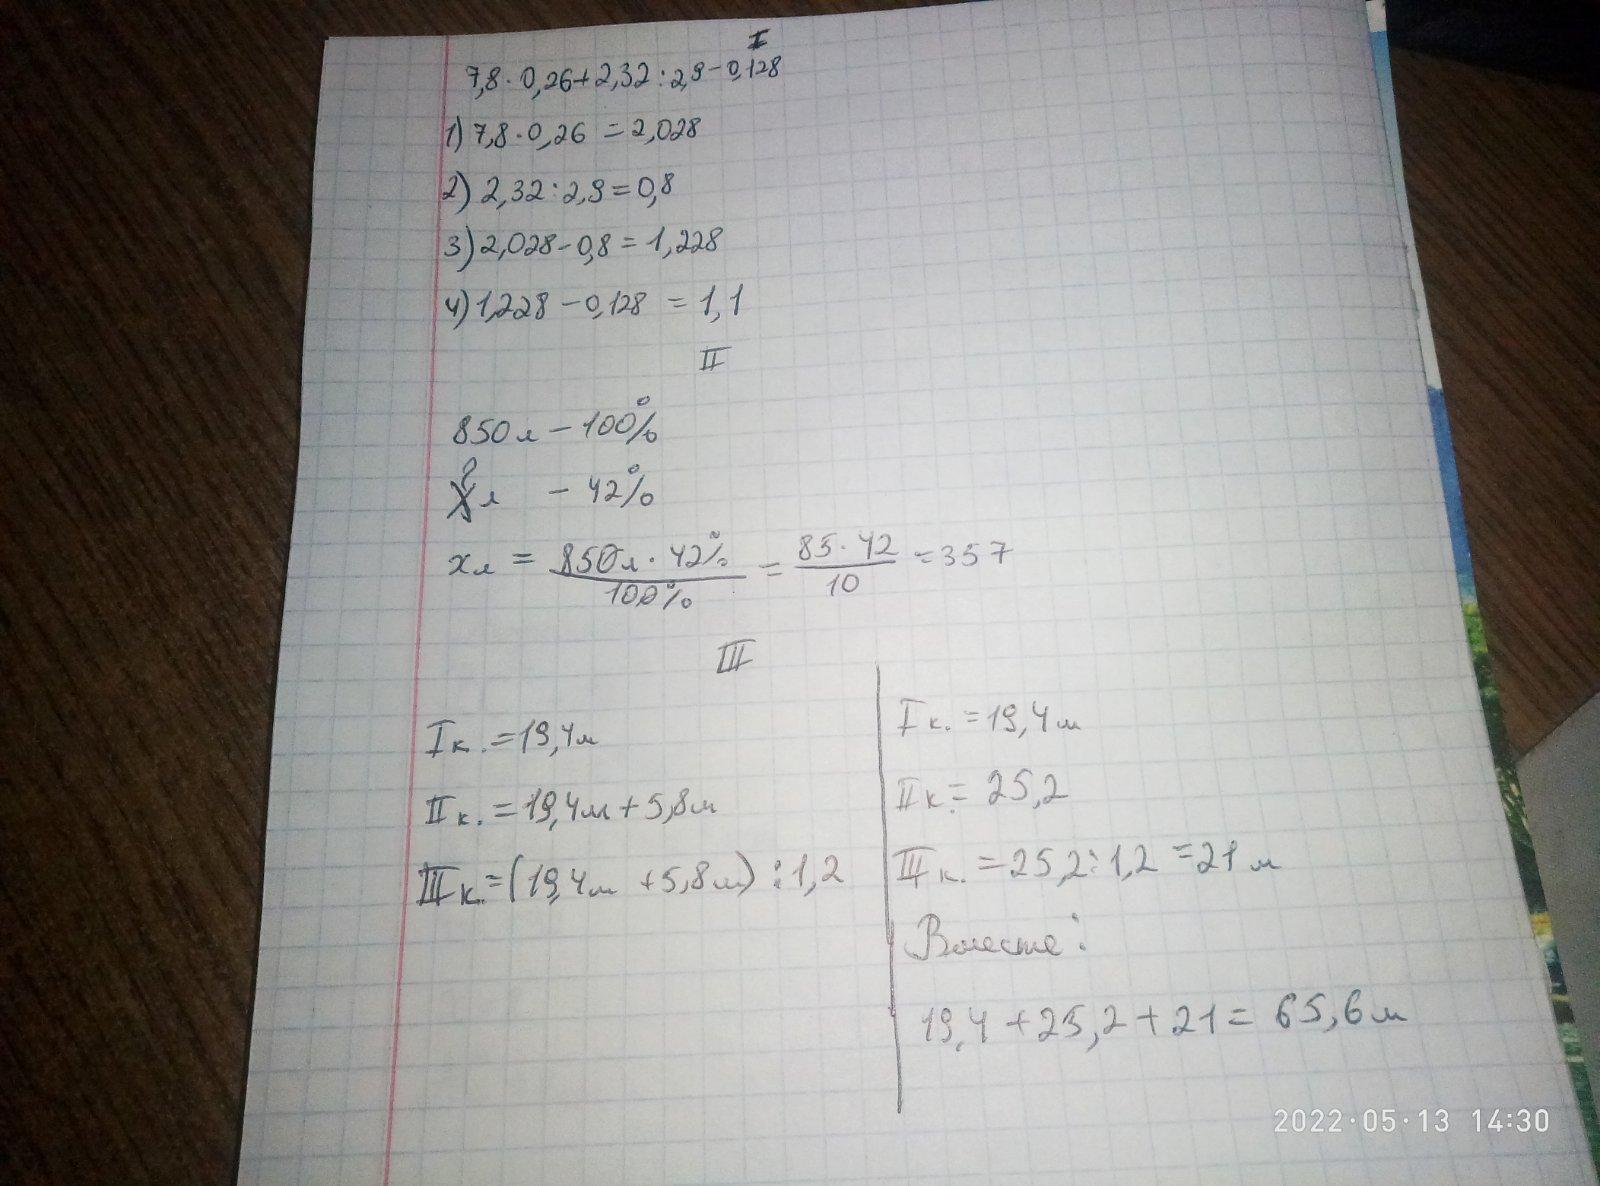 I
7,8 · 0,26 + 2,32 : 2,9 - 0,128
1) 7,8 · 0,26 = 2,028
2) 2,32 : 2,9 = 0,8
3) 2,028 - 0,8 = 1,228
4) 1,228 - 0,128 = 1,1
II
850 л - 100%
? л - 42%
x л = 850 л · 42% / 100% = 85 · 42 / 10 = 357
III
I к. = 19,4 м
II к. = 19,4 м + 5,8 м
III к. = (19,4 м + 5,8 м) : 1,2
I к. = 19,4 м
II к. = 25,2
III к. = 25,2 : 1,2 = 21 м
Вместе:
19,4 + 25,2 + 21 = 65,6 м
2022·05·13 14:30